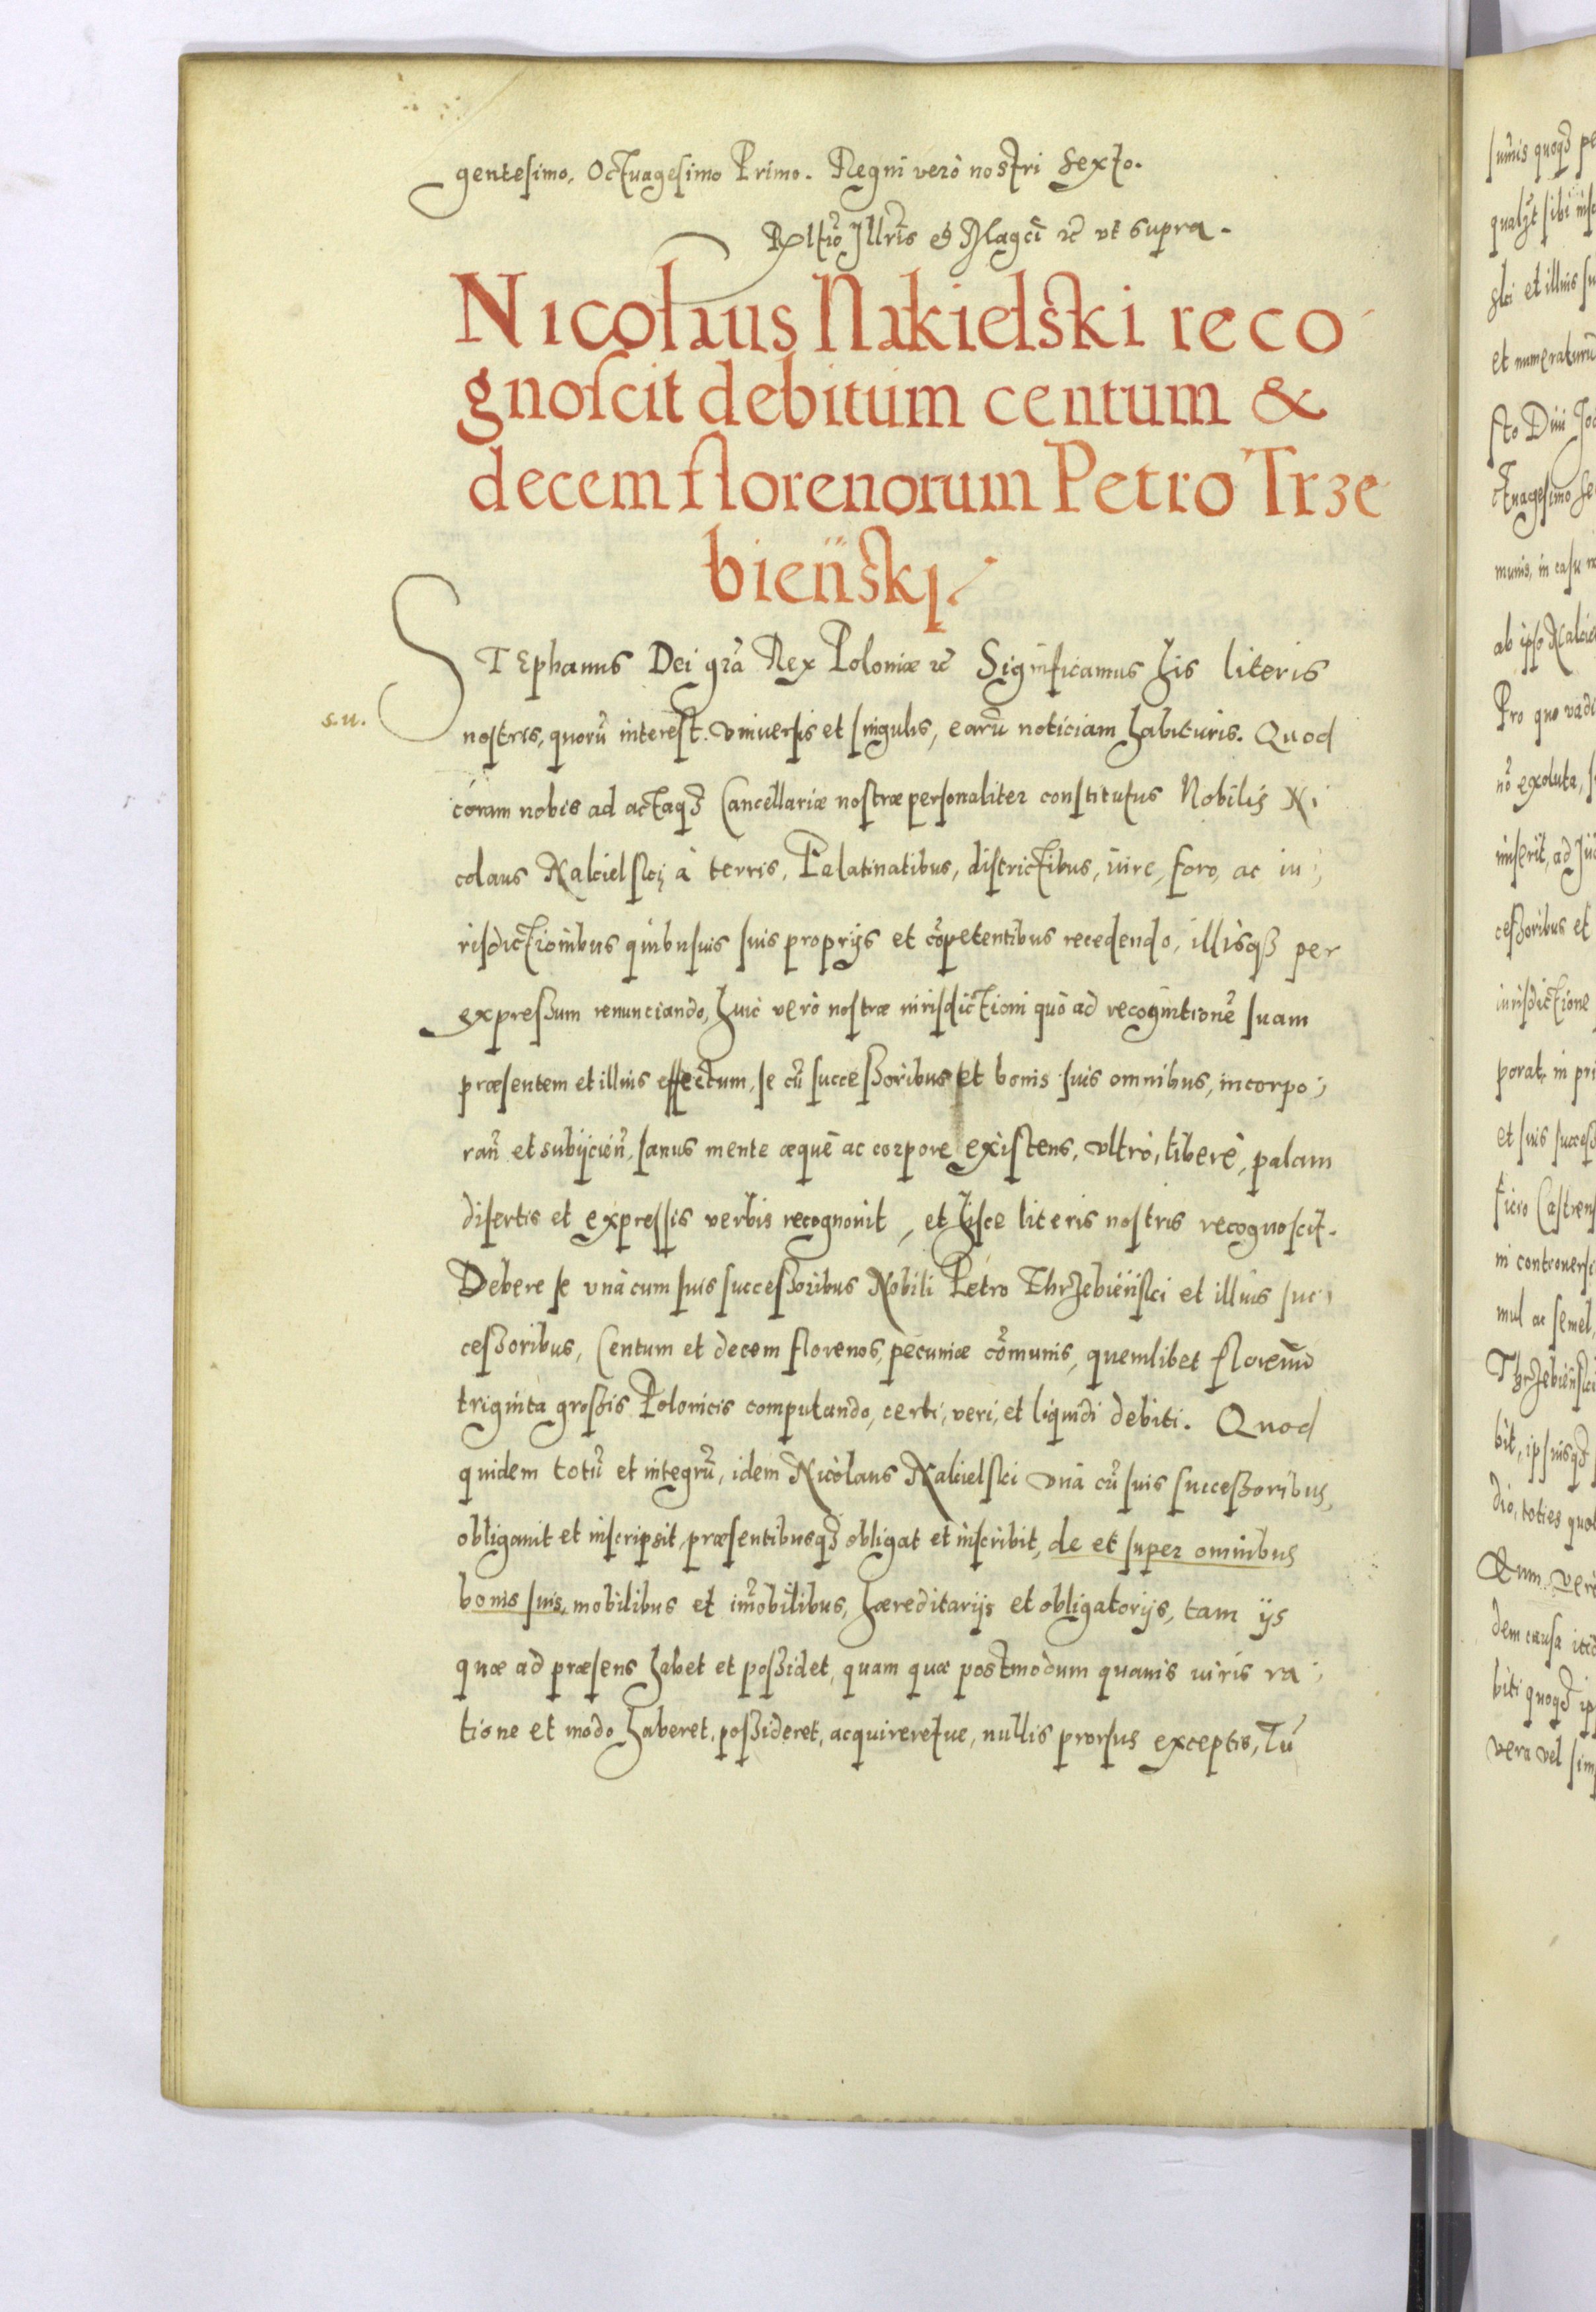 gentesimo. Octuagesimo Primo. Regni verò nostri Sexto.
Rltiõ Jllris et Magci ꝛc̃ vt supra.
Nicolaus Nakielski reco
gnoscit debitum centum &
decem florenorum Petro Trze
bieński.
STEphanus Dei grã Rex Poloniæ ꝛc̃ Significamus his literis
s.u.
nostris, quorũ interest. vniuersis et singulis, earũ noticiam habituris. Quod
coram nobis ad actaqꝫ Cancellariæ nostræ personaliter constitutus Nobilis Ni
colaus Nakielski à terris, Palatinatibus, districtibus, iure, foro, ac iu
risdictionibus quibusuis suis proprijs et cõpetentibus recedendo, illisqꝫ per
expressum renunciando, huic verò nostræ iurisdictioni quò ad recognitionẽ suam
præsentem et illius effectum, se cũ successoribus et bonis suis omnibus, incorpo
rañ et subijcieñ, sanus mente æquè ac corpore existens, vltrò, liberè, palam
disertis et expressis verbis recognouit, et hisce literis nostris recognoscit.
Debere se vnà cum suis successoribus Nobili Petro Thrzebieński et illius suc
cessoribus, Centum et decem florenos, pecuniæ cõmunis, quemlibet florenũ
triginta grossis Polonicis computando, certi, veri, et liquidi debiti. Quod
quidem totũ et integrũ, idem Nicolaus Nakielski vnà cũ suis successoribus,
obligauit et inscripsit, præsentibusqꝫ obligat et inscribit, de et super omnibus
bonis suis, mobilibus et im̃obilibus, hæreditarijs et obligatorijs, tam ijs
quæ ad præsens habet et possidet, quam quæ postmodum quauis iuris ra
tione et modo haberet, possideret, acquireretue, nullis prorsus exceptis, Tũ